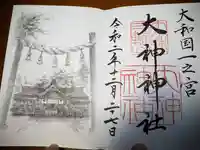 大和国一之宮
大神神社
令和二年十一月二十七日